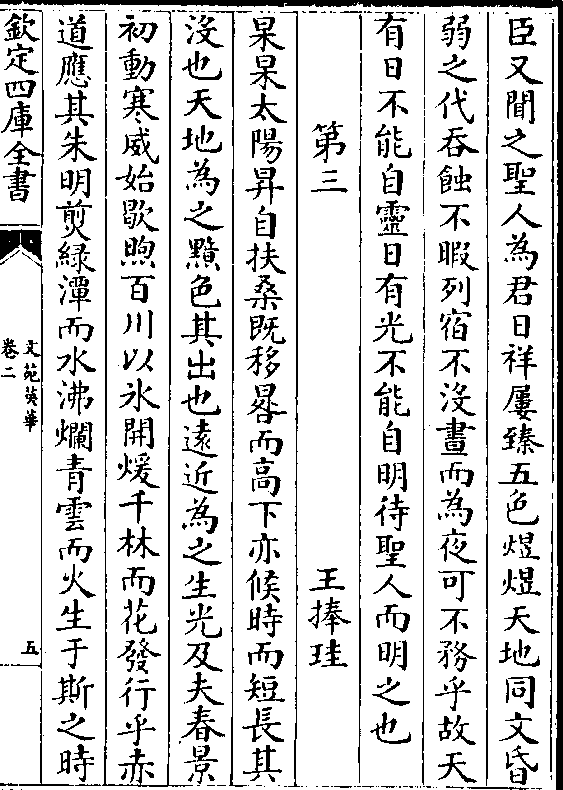 臣又聞之聖人為君日祥屢臻五色煜煜天地同文昏
弱之代吞蝕不暇列宿不沒晝而為夜可不務乎故天
有日不能自靈日有光不能自明待聖人而明之也
第三 王捧珪
杲杲太陽昇自扶桑既移晷而高下亦候時而短長其
沒也天地為之黯色其出也遠近為之生光及夫春景
初動寒威始歇煦百川以氷開煖千林而花發行乎赤
道應其朱明煎緑潭而水沸爛青雲而火生于斯之時
欽定四庫全書
文苑英華
卷二
五